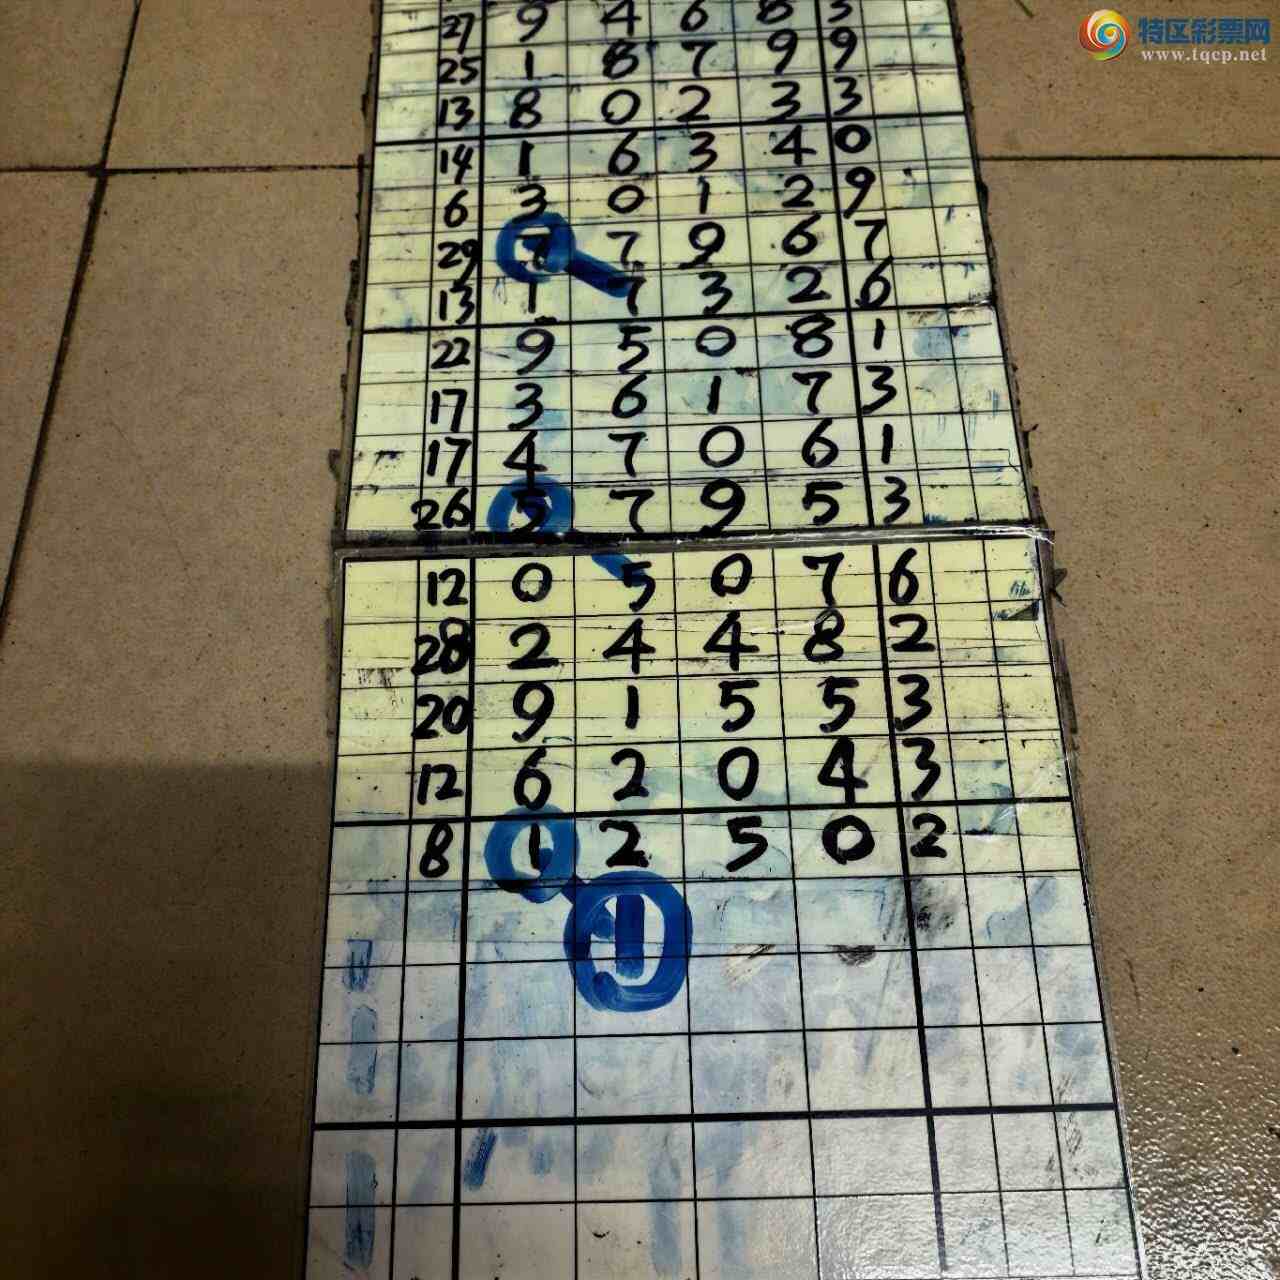 特区彩票网
www.tqcp.net
27 9 4 6 8 3
25 1 8 7 9 9
13 8 0 2 3 3
14 1 6 3 4 0
6 3 0 1 2 9
29 7 7 9 6 7
13 1 7 3 2 6
22 9 5 0 8 1
17 3 6 1 7 3
17 4 7 0 6 1
26 5 7 9 5 3
12 0 5 0 7 6
28 2 4 4 8 2
20 9 1 5 5 3
12 6 2 0 4 3
8 1 2 5 0 2
1